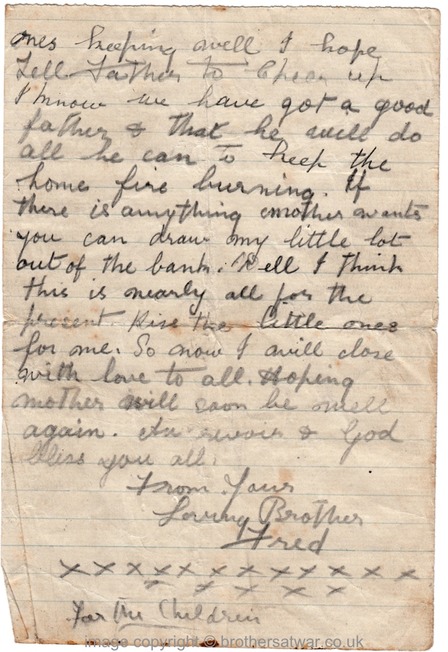 ones keeping well I hope
Tell Father to Chear up
I know we have got a good
father & that he will do
all he can to keep the
home fire burning. If
there is anything mother wants
you can draw my little lot
out of the bank. Well I think
this is nearly all for the
present. Kiss the little ones
for me. So now I will close
with love to all. Hoping
mother will soon be well
again. Au revoir & God
bless you all.
From Your
Loving Brother
Fred
x x x x x x x x x x x x
x x x x x
For the Children
image copyright © brothersatwar.co.uk